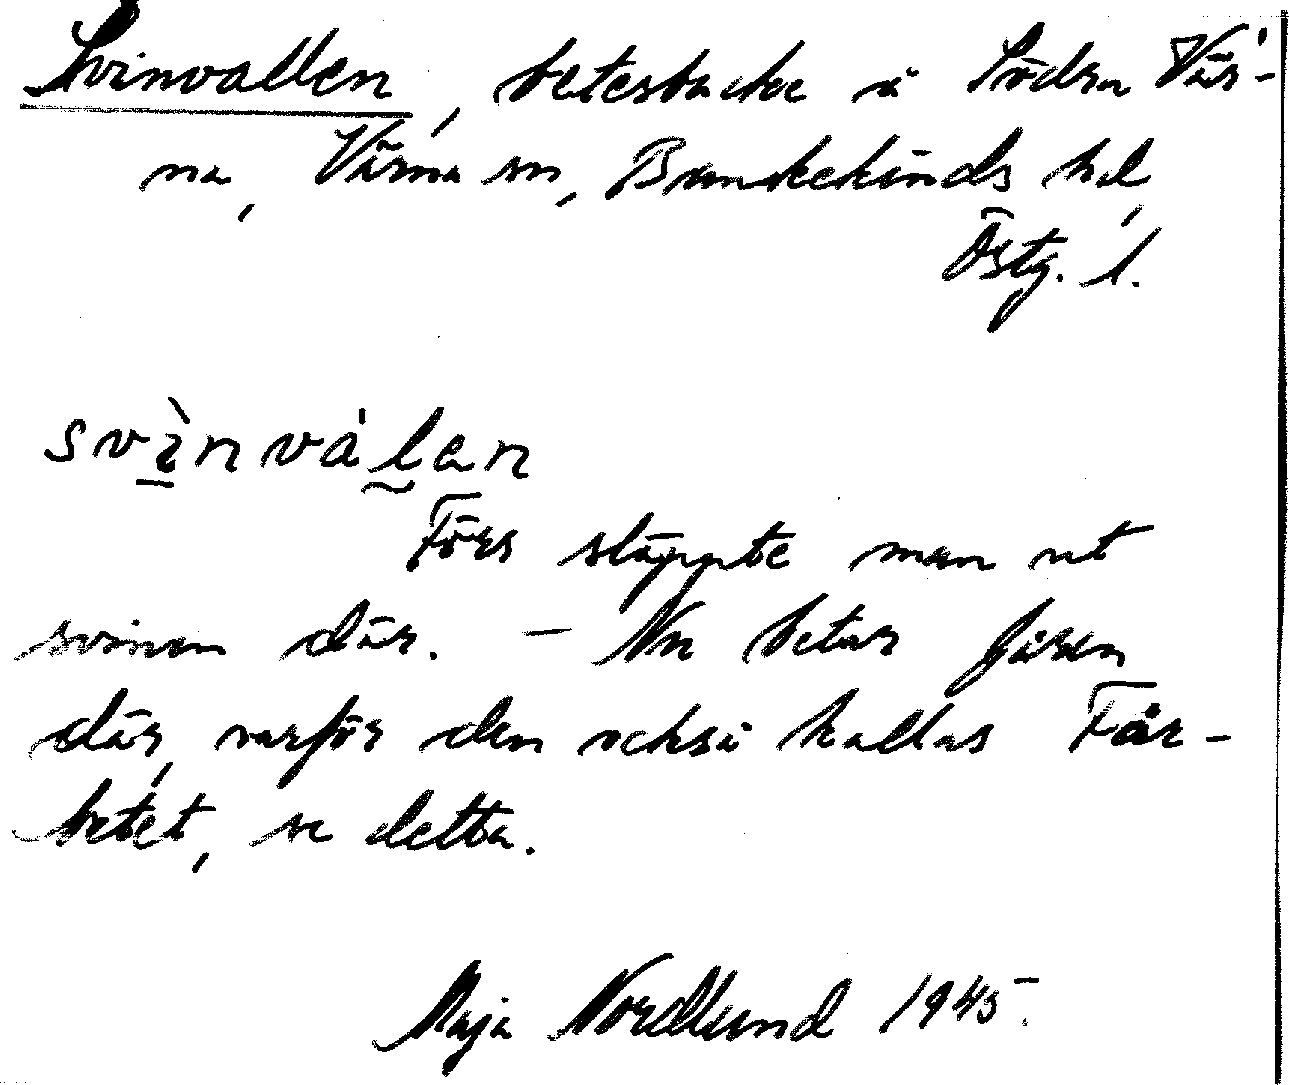 Svinvallen, betesbacke i Södra Vår-
na, Vårna sn, Bankekinds hd,
Östg. l.
svì̠nvȧḻan
Förr släppte man ut
svinen där. — Nu betar fåren
där, varför den också kallas Får-
betet, se detta.
Maja Nordlund 1945.